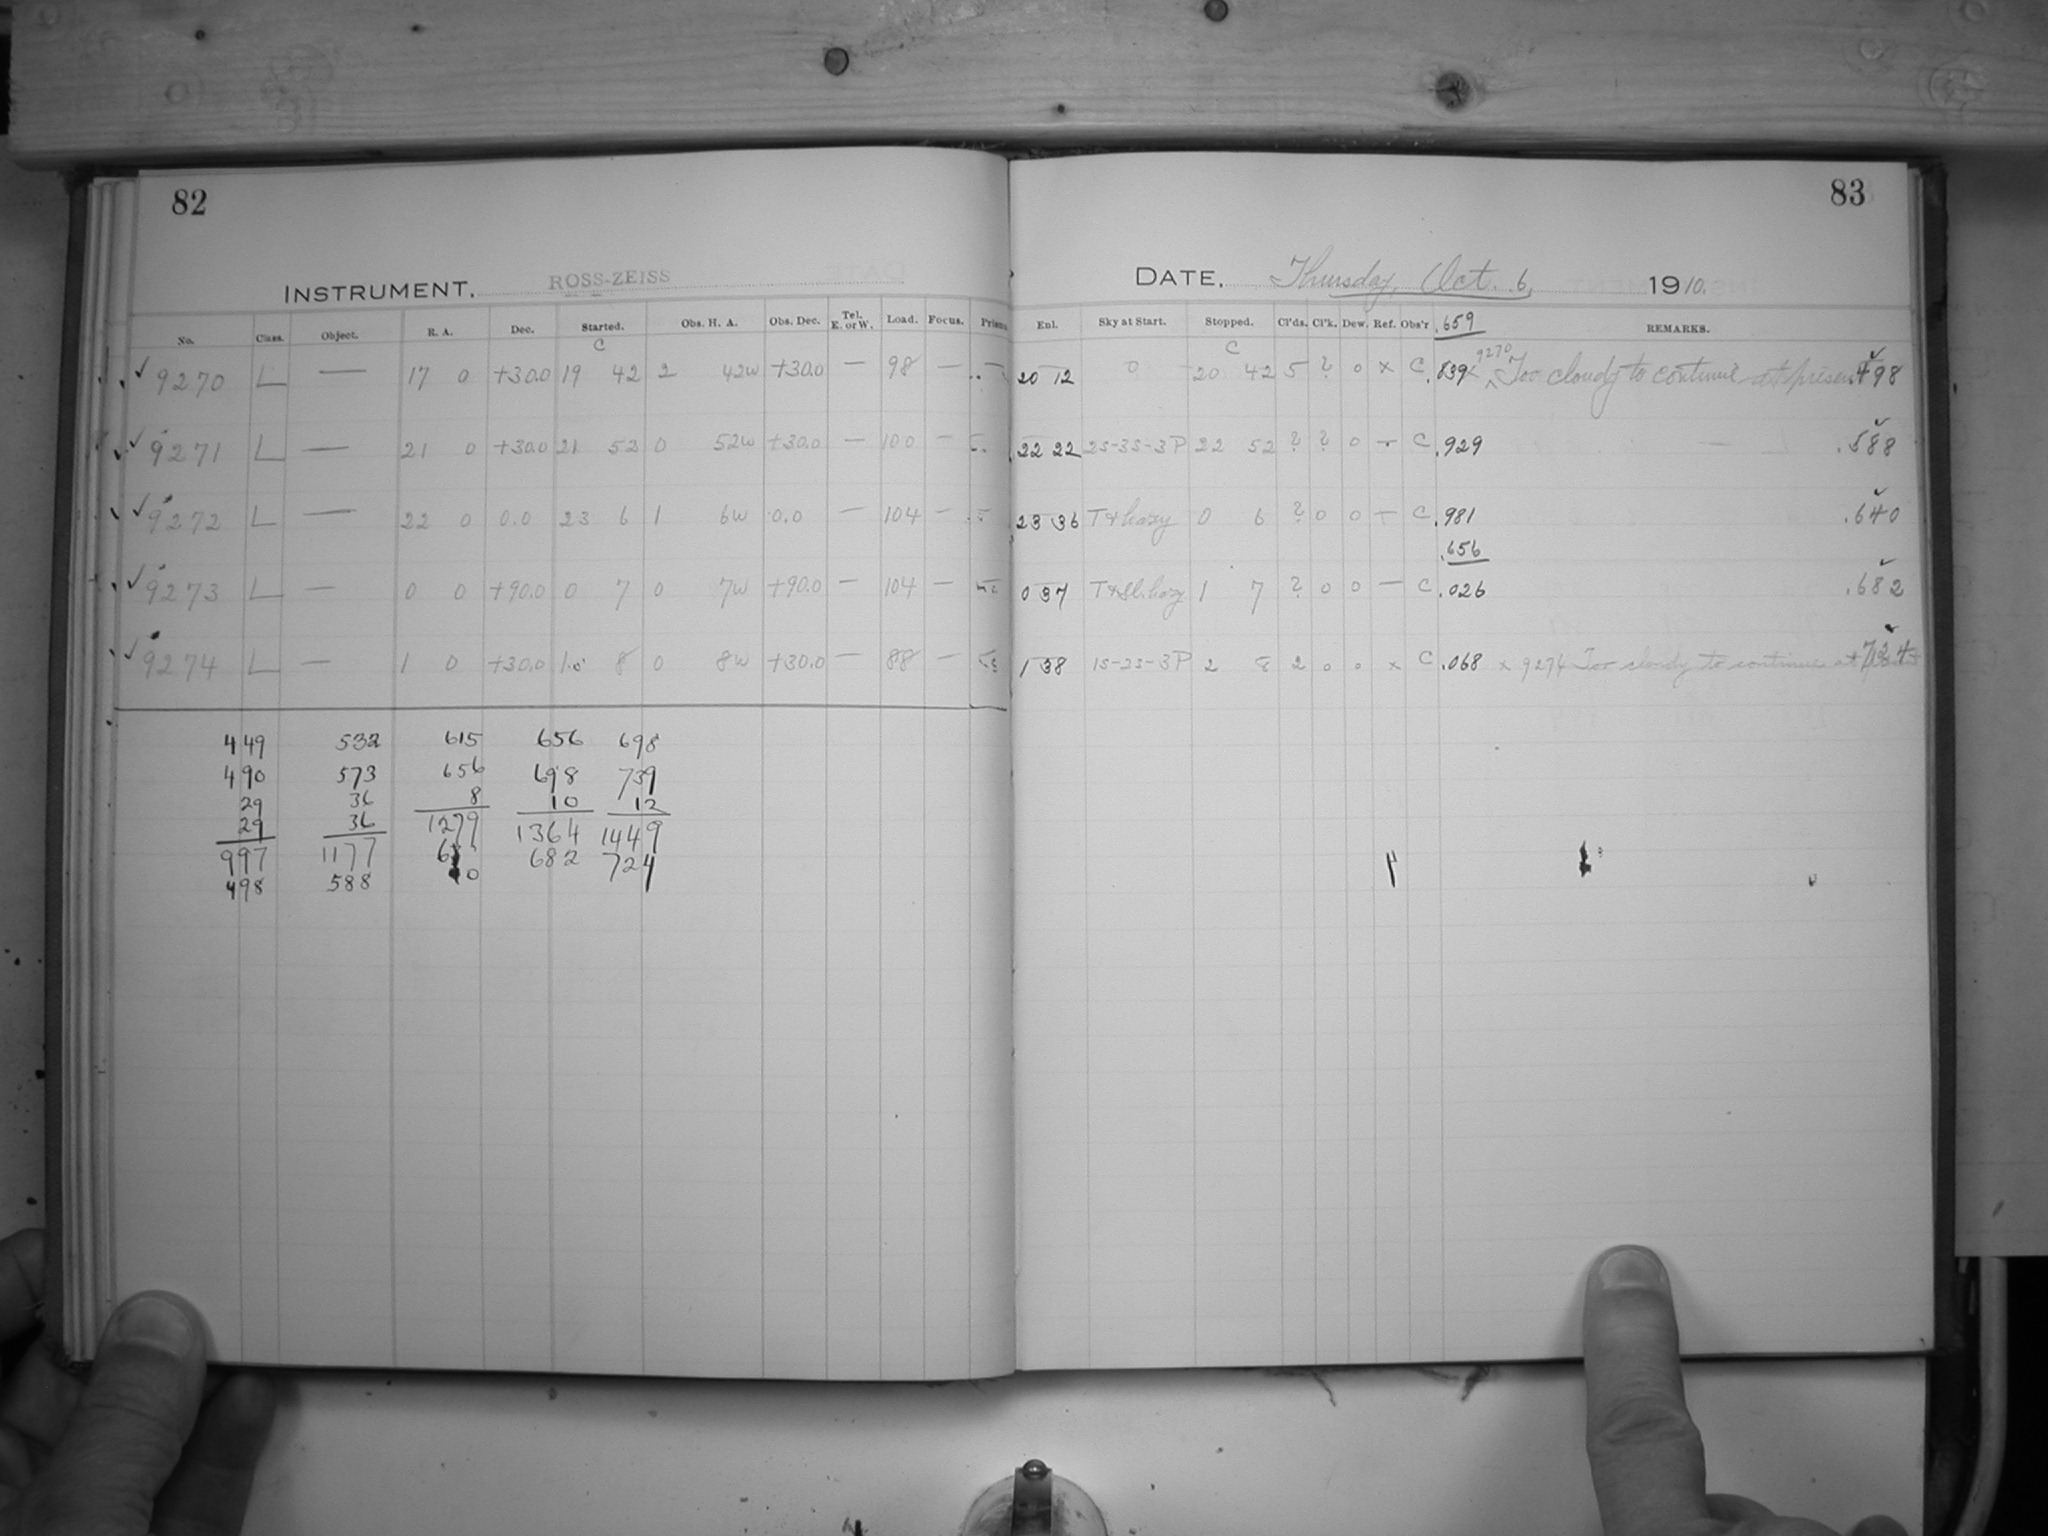 82
INSTRUMENT. ROSS-ZEISS
No. Class. Object. R. A. Dec. Started. Obs. H. A. Obs. Dec. Tel. E. or W. Load. Focus. Prism
C
9270 L — 17 0 +30.0 19 42 2 42w +30.0 — 98 —
9271 L — 21 0 +30.0 21 52 0 52w +30.0 — 100 —
9272 L — 22 0 0.0 23 6 1 6w 0.0 — 104 —
9273 L — 0 0 +90.0 0 7 0 7w +90.0 — 104 —
9274 L — 1 0 +30.0 1 8 0 8w +30.0 — 88 —
449 532 615 656 698
490 573 656 698 739
29 36 8 10 12
29 36 1279 1364 1449
997 1177 682 724
498 588
83
DATE, Thursday, Oct. 6, 1910.
Enl. Sky at Start. Stopped. Cl'ds. Cl'k. Dew. Ref. Obs'r .659 REMARKS.
C 9270
20 12 0 20 42 5 ? 0 x C .839 x Too cloudy to continue at present .498
22 22 2S-3S-3P 22 52 ? ? 0 — C .929 .588
23 36 T & hazy 0 6 ? 0 0 — C .981 .640
.656
0 37 T & Sl. hazy 1 7 ? 0 0 — C .026 .682
1 38 1S-2S-3P 2 8 2 0 0 x C .068 x 9274 Too cloudy to continue at 724